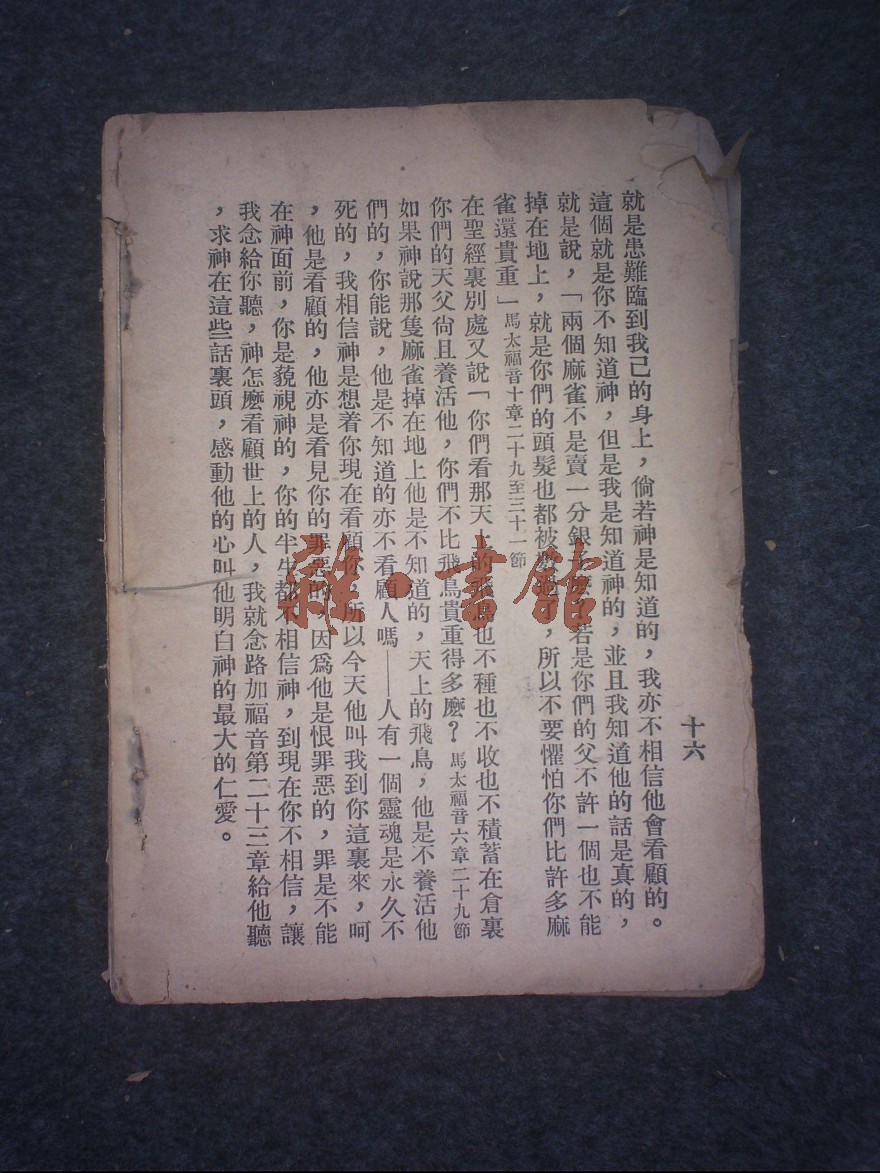 十六
就是患難臨到我己的身上，倘若神是知道的，我亦不相信他會看顧的。
這個就是你不知道神，但是我是知道神的，並且我知道他的話是真的，
就是說，「兩個麻雀不是賣一分銀若是你們的父不許一個也不能
掉在地上，就是你們的頭髮也都被，所以不要懼怕你們比許多麻
雀還貴重」馬太福音十章二十九至三十一節
在聖經裏別處又說「你們看那天上的飛鳥也不種也不收也不積蓄在倉裏
你們的天父尙且養活他，你們不比飛鳥貴重得多麽？馬太福音六章二十九節
如果神說那隻麻雀掉在地上他是不知道的，天上的飛鳥，他是不養活他
們的，你能說，他是不知道的亦不看顧人嗎——人有一個靈魂是永久不
死的，我相信神是想着你現在看顧你，所以今天他叫我到你這裏來，呵
，他是看顧的，他亦是看見你的罪惡的，因爲他是恨罪惡的，罪是不能
在神面前，你是藐視神的，你的半生都不相信神，到現在你不相信，讓
我念給你聽，神怎麽看顧世上的人，我就念路加福音第二十三章給他聽
，求神在這些話裏頭，感動他的心叫他明白神的最大的仁愛。
雜·書館